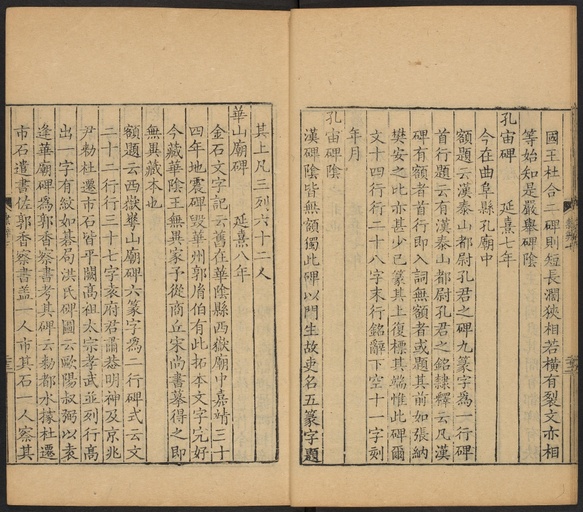 國王杜合二碑則短長濶狹相若橫有裂文亦相
等始知是嚴舉碑陰
孔宙碑　延熹七年
今在曲阜縣孔廟中
額題云漢泰山都尉孔君之碑九篆字為一行碑
首行題云有漢泰山都尉孔君之銘隸釋云凡漢
碑有額者首行即入詞無額者或題其前如張納
樊安之比亦甚少已篆其上復標其端惟此碑爾
文十四行行二十八字末行銘辭下空十一字刻
年月
孔宙碑陰
漢碑陰皆無額獨此碑以門生故吏名五篆字題
其上凡三列六十二人
華山廟碑　延熹八年
金石文字記云舊在華陰縣西嶽廟中嘉靖三十
四年地震碑毀華州郭𦙍伯有此拓本文字完好
今藏華陰王無異家予從商丘宋尚書摹得之即
無異藏本也
額題云西嶽華山廟碑六篆字為二行碑式云文
二十二行行三十七字袁府君諱恭明神及京兆
尹勑杜遷市石皆平闕高祖太宗孝武並列行高
出一字有紋如棊局洪氏碑圖云歐陽叔弼以袁
逢華廟碑為郭香察書考其碑云勑都水掾杜遷
市石遣書佐郭香察書葢一人市其石一人察其